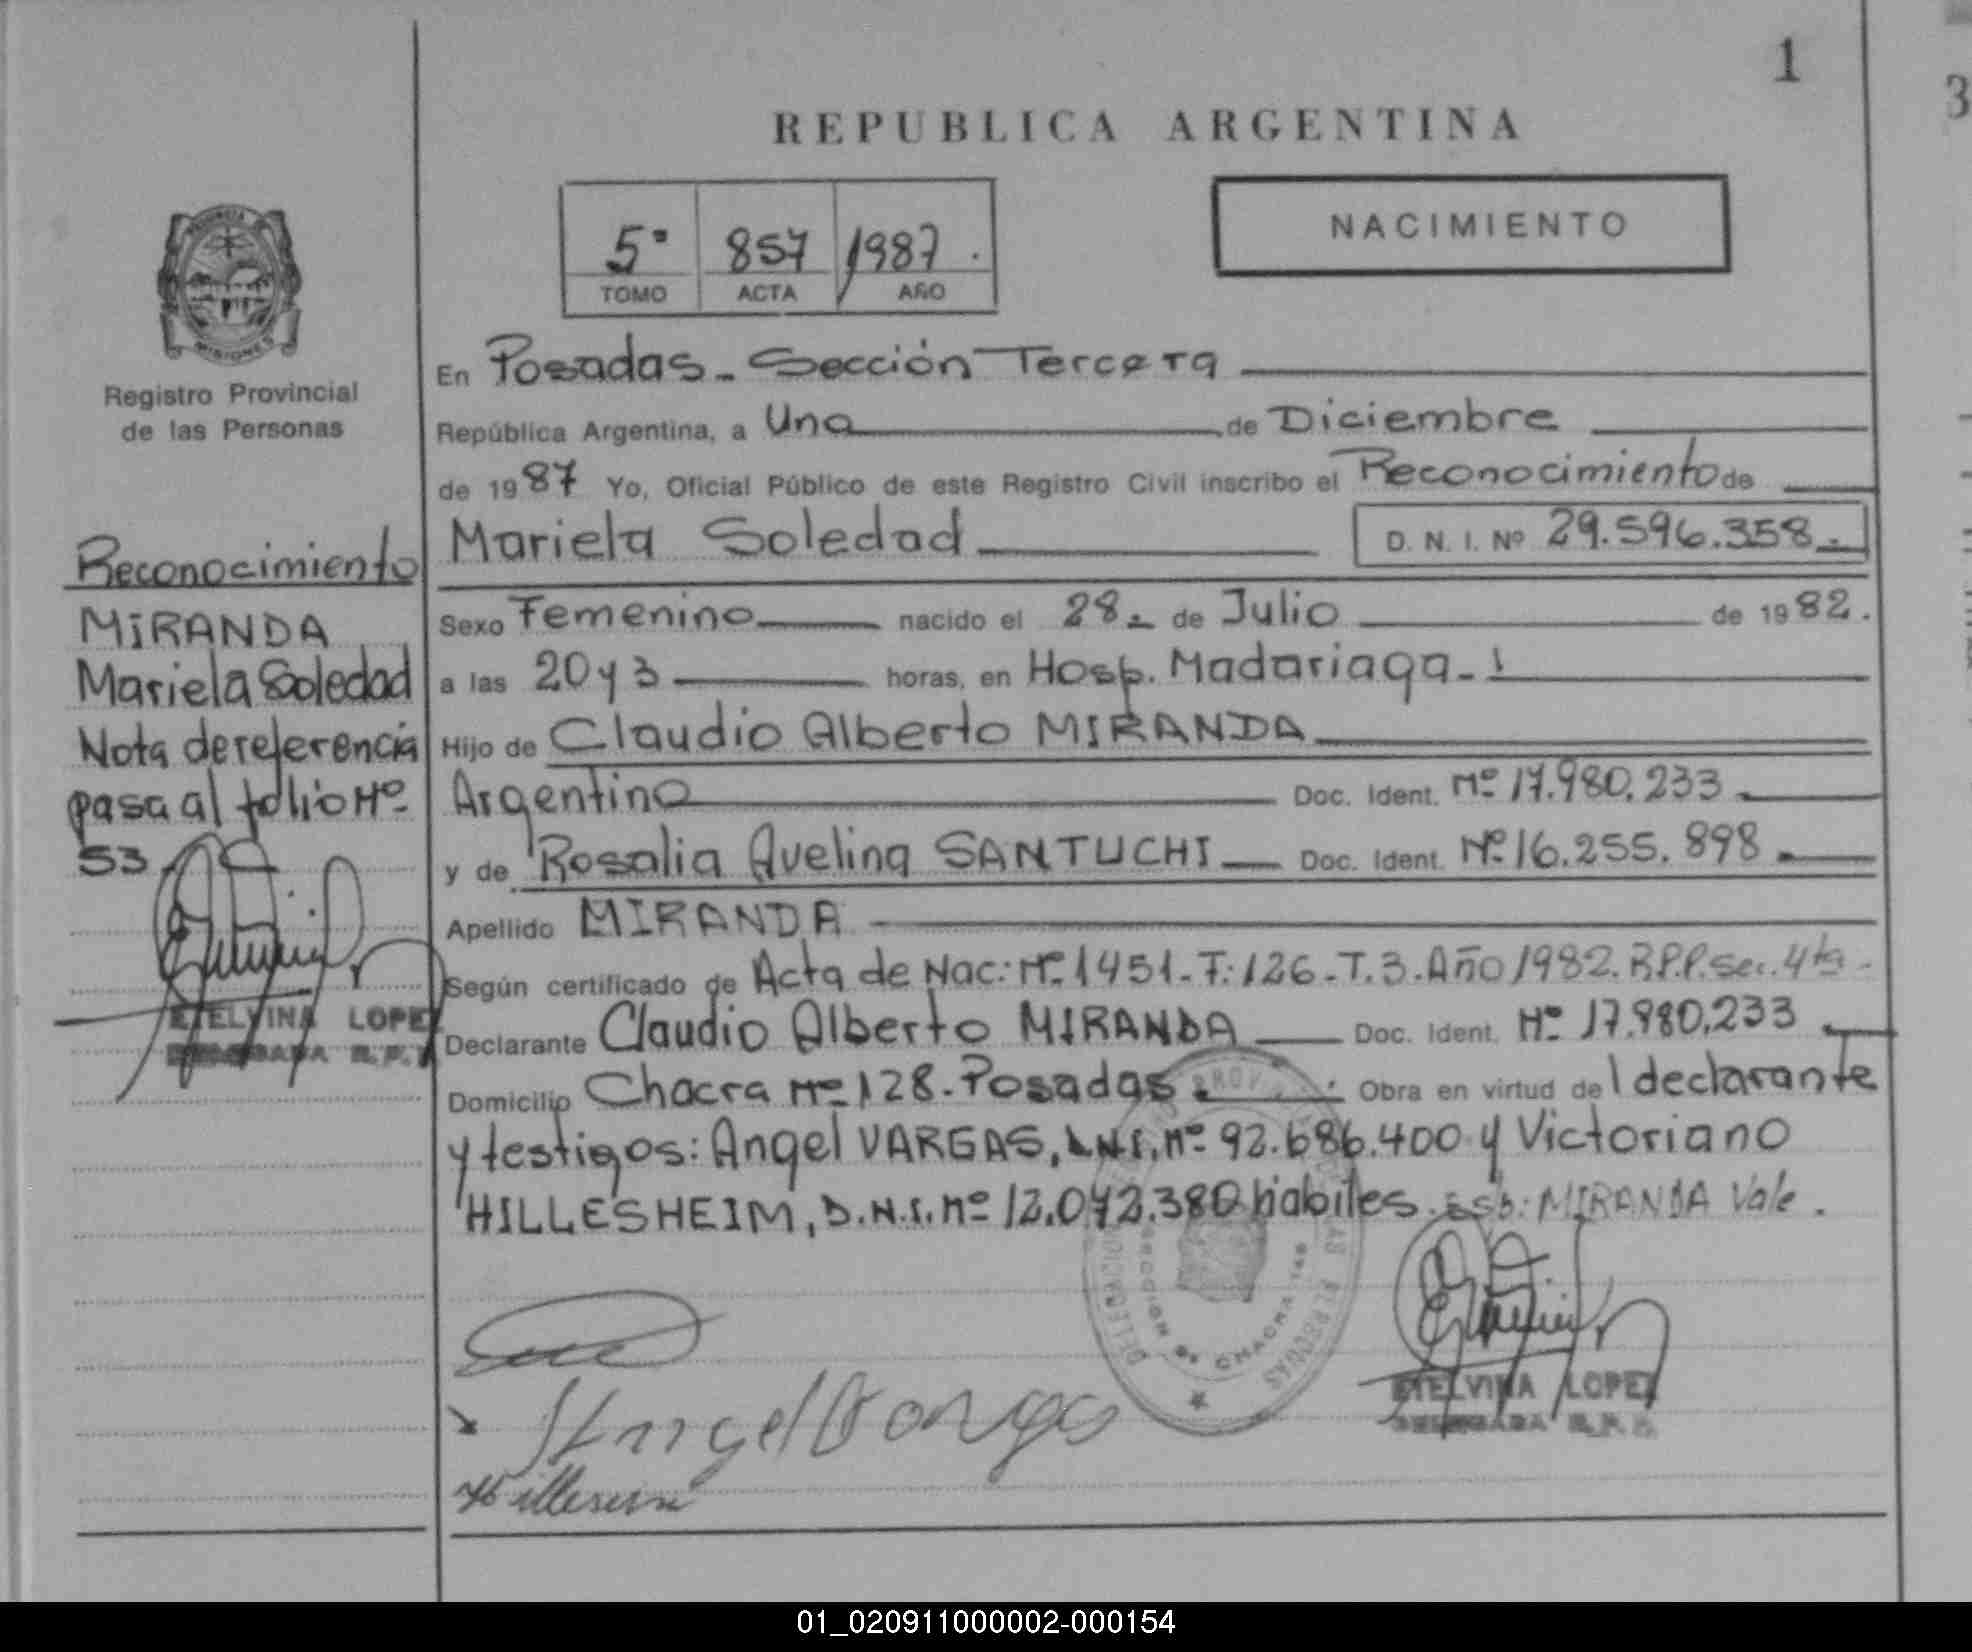 1
3
REPUBLICA ARGENTINA
5º 857 1987.
TOMO ACTA AÑO
NACIMIENTO
MISIONES
Registro Provincial
de las Personas
En Posadas - Sección Tercera
República Argentina, a Uno de Diciembre
de 1987 Yo, Oficial Público de este Registro Civil inscribo el Reconocimiento de
Mariela Soledad D. N. I. Nº 29.596.358.
Sexo Femenino nacido el 28. de Julio de 1982.
a las 20 y 3 horas, en Hosp. Madariaga -
Hijo de Claudio Alberto MIRANDA
Argentino Doc. Ident. Nº 17.980.233
y de Rosalia Avelina SANTUCHI Doc. Ident. Nº 16.255.898
Apellido MIRANDA
Según certificado de Acta de Nac: Nº 1451 - F: 126 - T. 3. Año 1982. R.P.P. sec. 4ta -
Declarante Claudio Alberto MIRANDA Doc. Ident. Nº 17.980.233
Domicilio Chacra Nº 128. Posadas. Obra en virtud del declarante
y testigos: Angel VARGAS, D.N.I. Nº 92.686.400 y Victoriano
HILLESHEIM, D.N.I. Nº 12.072.380 habiles. MIRANDA Vale.
Reconocimiento
MIRANDA
Mariela Soledad
Nota de referencia
pasa al folio Nº
53
ETELVINA LOPEZ
DELEGADA R.P.P.
Angel Vargas
ETELVINA LOPEZ
DELEGADA R.P.P.
01_020911000002-000154